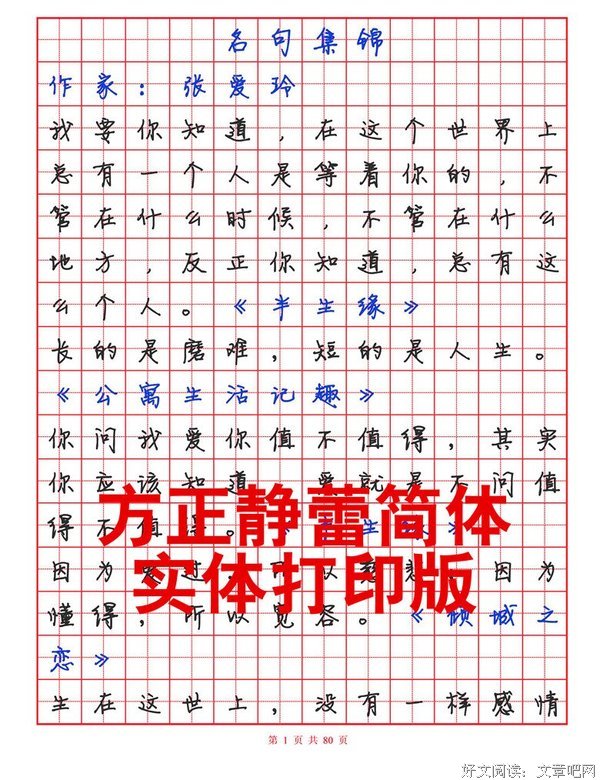 名句集锦
作家：张爱玲
我要你知道，在这个世界上
总有一个人是等着你的，不
管在什么时候，不管在什么
地方，反正你知道，总有这
么个人。《半生缘》
长的是磨难，短的是人生。
《公寓生活记趣》
你问我爱你值不值得，其实
你应该知道，爱就是不问值
得不值得。《半生缘》
方正静蕾简体
因为爱过，所以慈悲，因为
实体打印版
懂得，所以宽容。《倾城之
恋》
生在这世上，没有一样感情
第 1 页 共 80 页
好文阅读：文章吧网